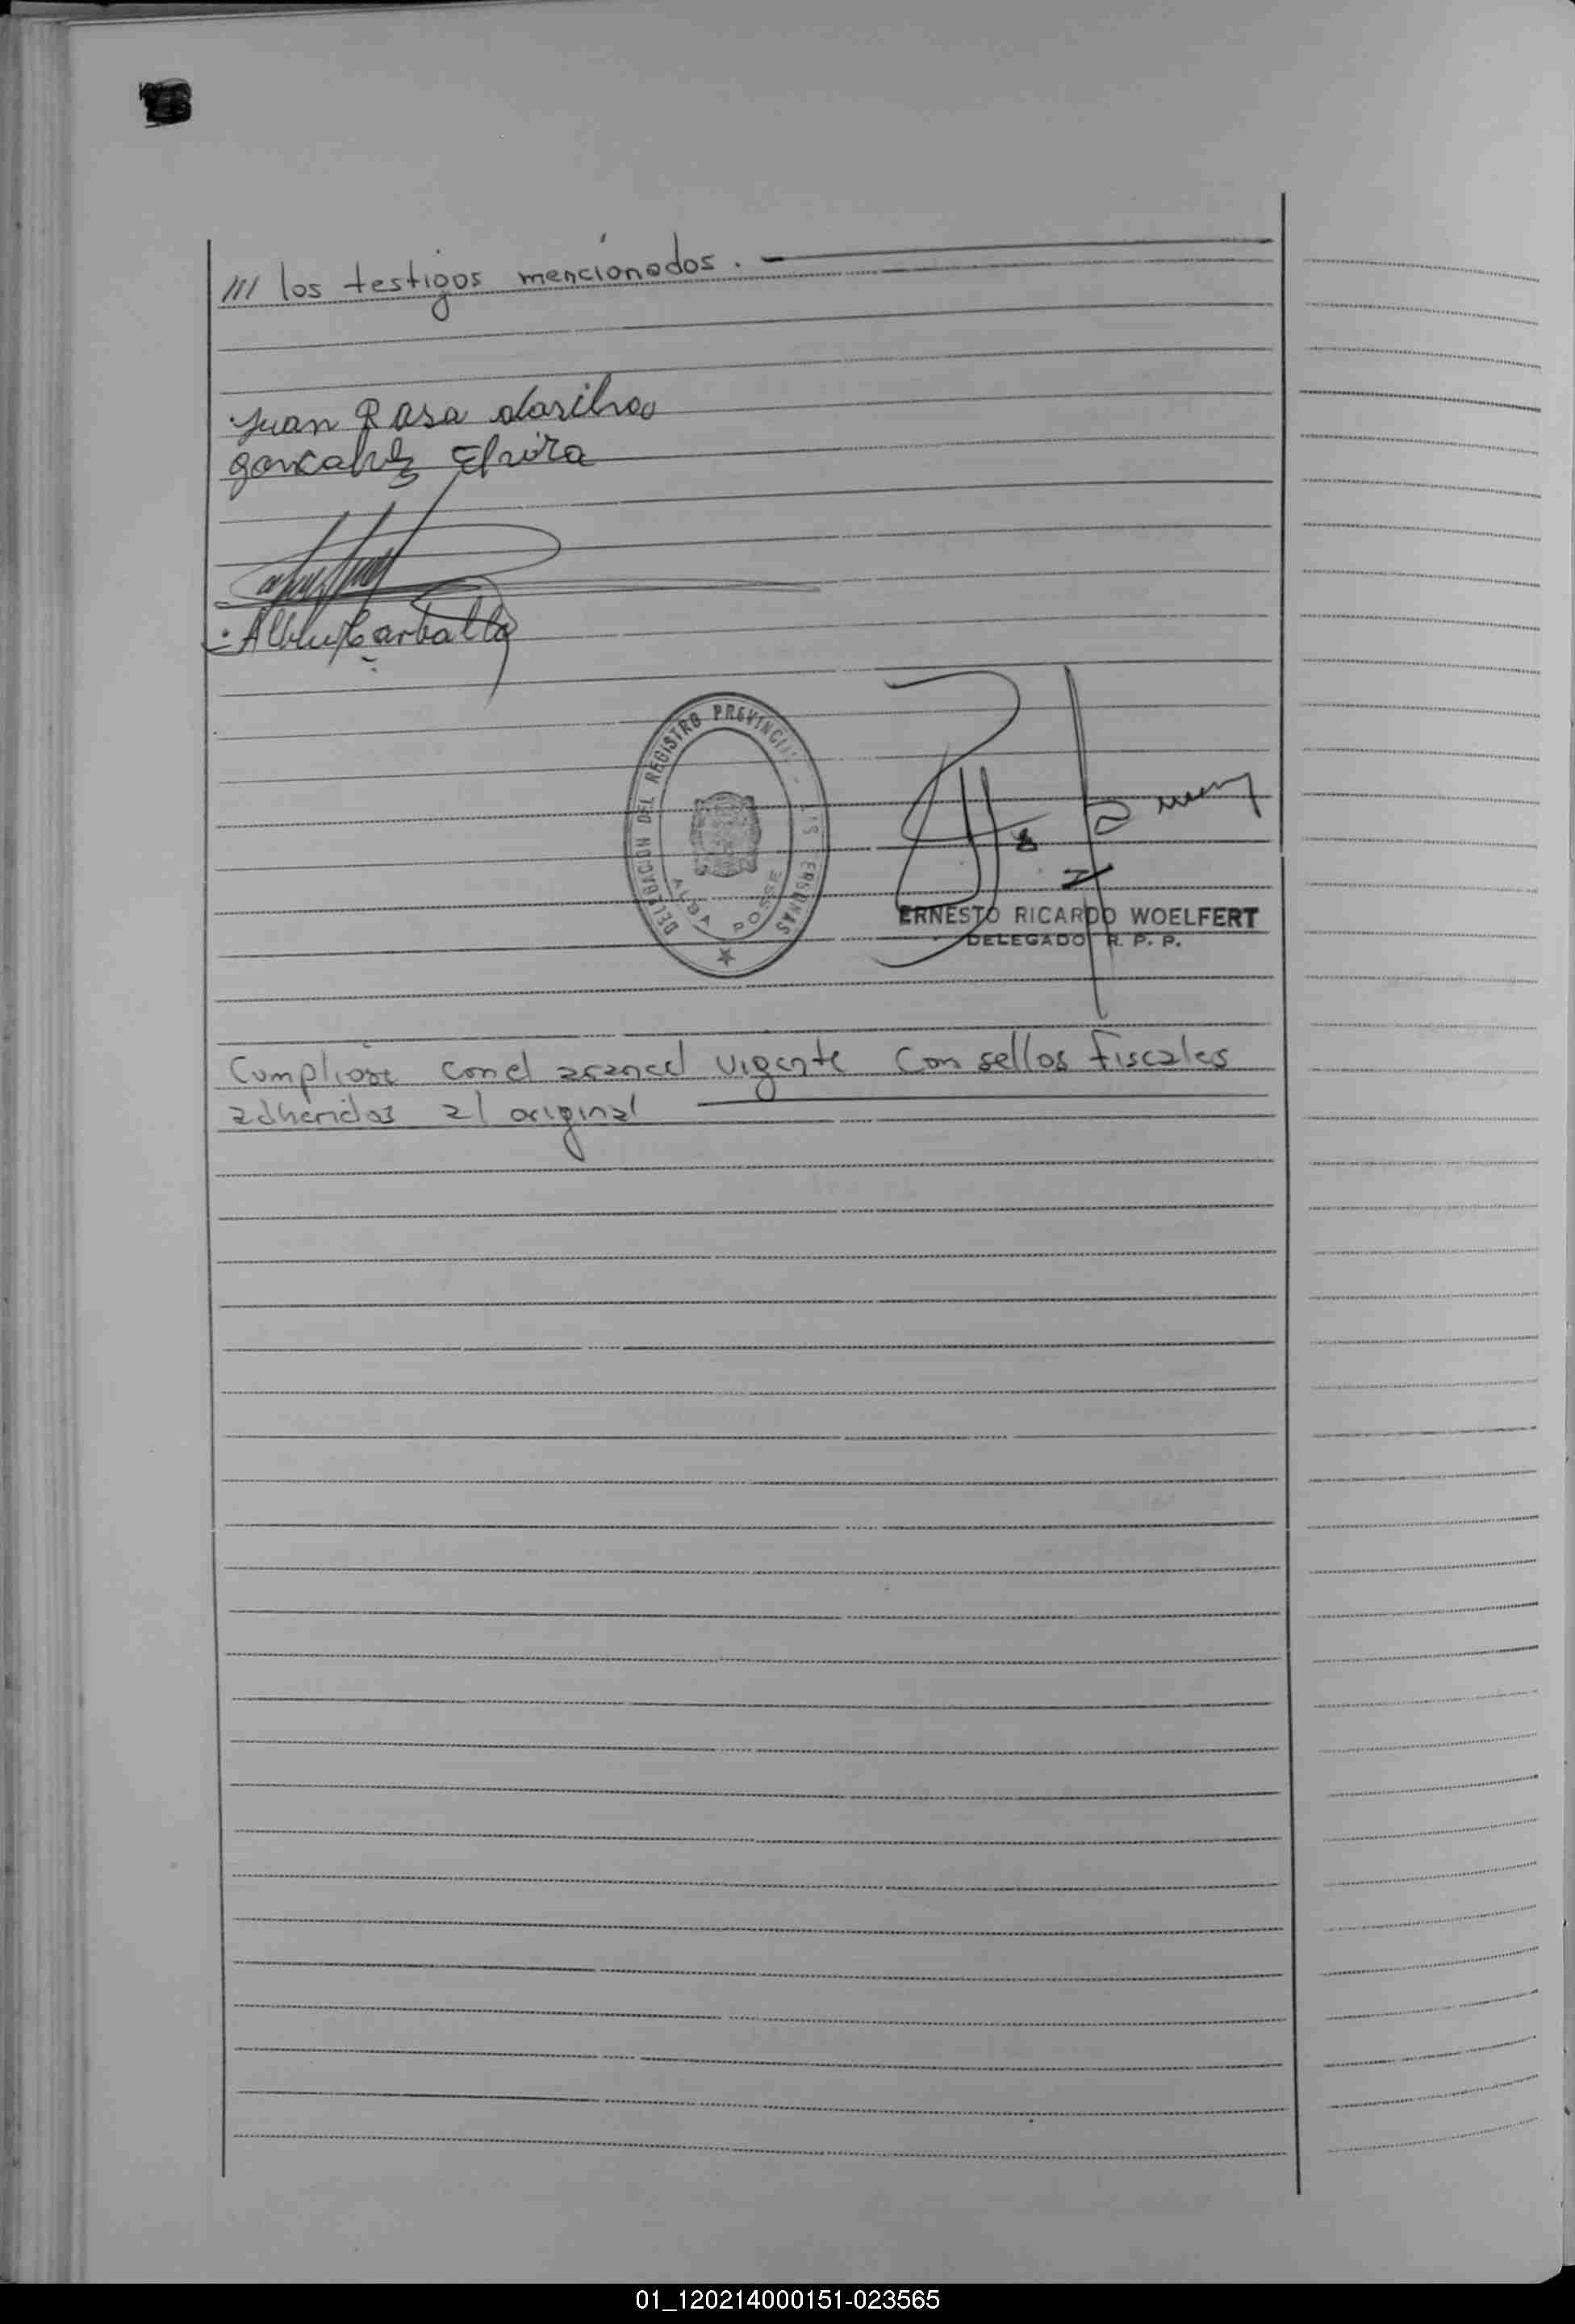 /// los testigos mencionados. —
Juan Rosa
goncalvez Elvira
Carballo
DELEGACION DEL REGISTRO PROVINCIAL
ALBA POSSE
ERNESTO RICARDO WOELFERT
DELEGADO R. P. P.
Cumpliose con el arancel vigente Con sellos fiscales
adheridos al original
01_120214000151-023565